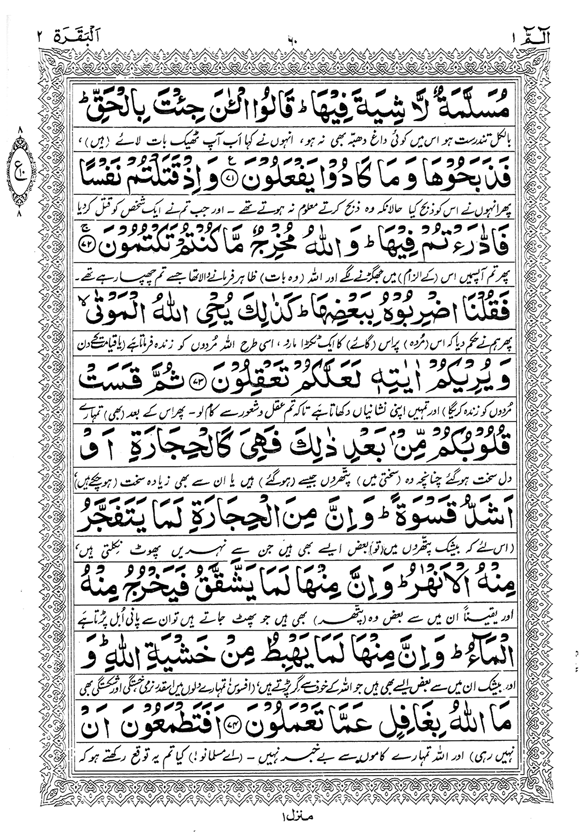 الٓمّٓ ١ ٦٠ اَلْبَقَرَة ٢
مُسَلَّمَةٌ لَّا شِيَةَ فِيْهَا ؕ قَالُوا الْـٰٔنَ جِئْتَ بِالْحَقِّ ؕ
بالکل تندرست ہو اس میں کوئی داغ دھبّہ بھی نہ ہو، انہوں نے کہا اب آپ ٹھیک بات لائے (ہیں)،
فَذَبَحُوْهَا وَ مَا كَادُوْا يَفْعَلُوْنَ ﴿٧١﴾ وَ اِذْ قَتَلْتُمْ نَفْسًا
پھر انہوں نے اس کو ذبح کیا حالانکہ وہ ذبح کرتے معلوم نہ ہوتے تھے ۔ اور جب تم نے ایک شخص کو قتل کر دیا
فَادّٰرَءْتُمْ فِيْهَا ؕ وَ اللّٰهُ مُخْرِجٌ مَّا كُنْتُمْ تَكْتُمُوْنَ ﴿٧٢﴾
پھر تم آپس میں اس (کے الزام) میں جھگڑنے لگے اور اللہ (وہ بات) ظاہر فرمانے والا تھا جسے تم چھپا رہے تھے ۔
فَقُلْنَا اضْرِبُوْهُ بِبَعْضِهَا ؕ كَذٰلِكَ يُحْيِ اللّٰهُ الْمَوْتٰى ۙ
پھر ہم نے حکم دیا کہ اس (مُردہ) پر اس (گائے) کا ایک ٹکڑا مارو، اسی طرح اللہ مُردوں کو زندہ فرماتا ہے (یا قیامت کے دن
وَ يُرِيْكُمْ اٰيٰتِهٖ لَعَلَّكُمْ تَعْقِلُوْنَ ﴿٧٣﴾ ثُمَّ قَسَتْ
مُردوں کو زندہ کریگا) اور تمہیں اپنی نشانیاں دکھاتا ہے تاکہ تم عقل و شعور سے کام لو ۔ پھر اس کے بعد (بھی) تمہارے
قُلُوْبُكُمْ مِّنْۢ بَعْدِ ذٰلِكَ فَهِيَ كَالْحِجَارَةِ اَوْ
دل سخت ہوگئے چنانچہ وہ (سختی میں) پتھروں جیسے (ہوگئے) ہیں یا ان سے بھی زیادہ سخت (ہوچکے ہیں؛
اَشَدُّ قَسْوَةً ؕ وَ اِنَّ مِنَ الْحِجَارَةِ لَمَا يَتَفَجَّرُ
(اس لئے کہ) بیشک پتھروں میں (تو) بعض ایسے بھی ہیں جن سے نہریں پھوٹ نکلتی ہیں؛
مِنْهُ الْاَنْهٰرُ ؕ وَ اِنَّ مِنْهَا لَمَا يَشَّقَّقُ فَيَخْرُجُ مِنْهُ
اور یقیناً ان میں سے بعض وہ (پتھر) بھی ہیں جو پھٹ جاتے ہیں تو ان سے پانی اُبل پڑتا ہے
الْمَآءُ ؕ وَ اِنَّ مِنْهَا لَمَا يَهْبِطُ مِنْ خَشْيَةِ اللّٰهِ ؕ وَ
اور بیشک ان میں سے بعض ایسے بھی ہیں جو اللہ کے خوف سے گر پڑتے ہیں؛ (افسوس! تمہارے دلوں میں اسقدر نرمی، خستگی اور شکستگی بھی
مَا اللّٰهُ بِغَافِلٍ عَمَّا تَعْمَلُوْنَ ﴿٧٤﴾ اَفَتَطْمَعُوْنَ اَنْ
نہیں رہی) اور اللہ تمہارے کاموں سے بے خبر نہیں ۔ (اے مسلمانو!) کیا تم یہ توقع رکھتے ہو کہ
منزل ١